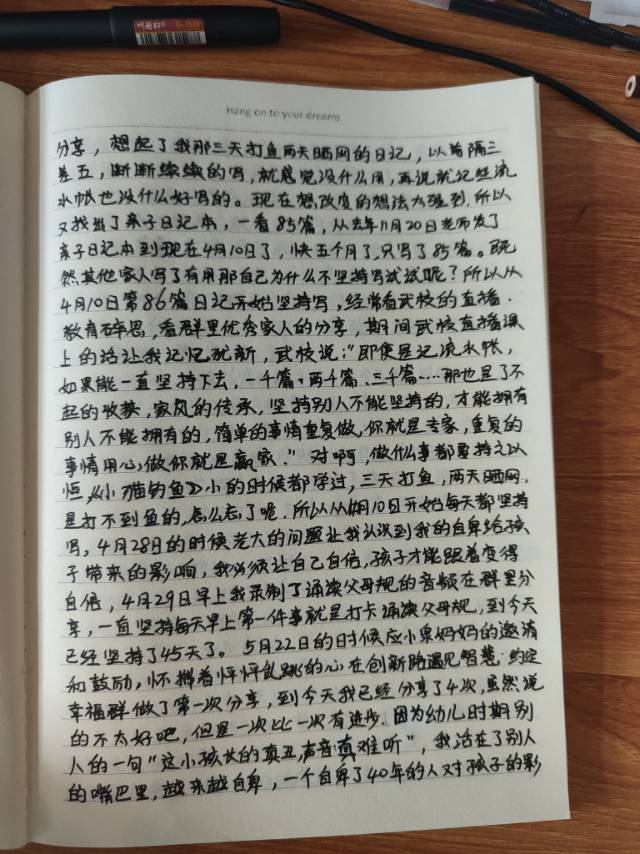 Hang on to your dreams
分享，想起了我那三天打鱼两天晒网的日记，以前隔三
差五，断断续续的写，就感觉没什么用，再说就记些流
水帐也没什么好写的。现在想改变的想法太强烈，所以
又找出了亲子日记本，一看85篇，从去年11月20日老师发了
亲子日记本到现在4月10日了，快五个月了，只写了85篇。既
然其他家人写了有用那自己为什么不坚持写试试呢？所以从
4月10日第86篇日记开始坚持写，经常看武校的直播．
教育碎思，看群里优秀家人的分享，期间武校直播课
上的话让我记忆犹新，武校说："即使是记流水帐，
如果能一直坚持下去，一千篇，两千篇、三千篇……那也是了不
起的收获，家风的传承，坚持别人不能坚持的，才能拥有
别人不能拥有的，简单的事情重复做，你就是专家，重复的
事情用心做你就是赢家．"对啊，做什么事都要持之以
恒，《小猫钓鱼》小的时候都学过，三天打鱼，两天晒网，
是打不到鱼的，怎么忘了呢．所以从4月10日开始每天都坚持
写，4月28日的时候老大的问题让我认识到我的自卑给孩
子带来的影响，我必须让自己自信，孩子才能跟着变得
自信，4月29日早上我录制了诵读父母规的音频在群里分
享，一直坚持每天早上第一件事就是打卡诵读父母规，到今天
已经坚持了45天了。5月22日的时候应小泉妈妈的邀请
和鼓励，怀揣着怦怦乱跳的心在创新路遇见智慧·约定
幸福群做了第一次分享，到今天我已经分享了4次，虽然说
的不太好吧，但是一次比一次有进步．因为幼儿时期别
人的一句"这小孩长的真丑，声音真难听"，我活在了别人
的嘴巴里，越来越自卑，一个自卑了40年的人对孩子的影